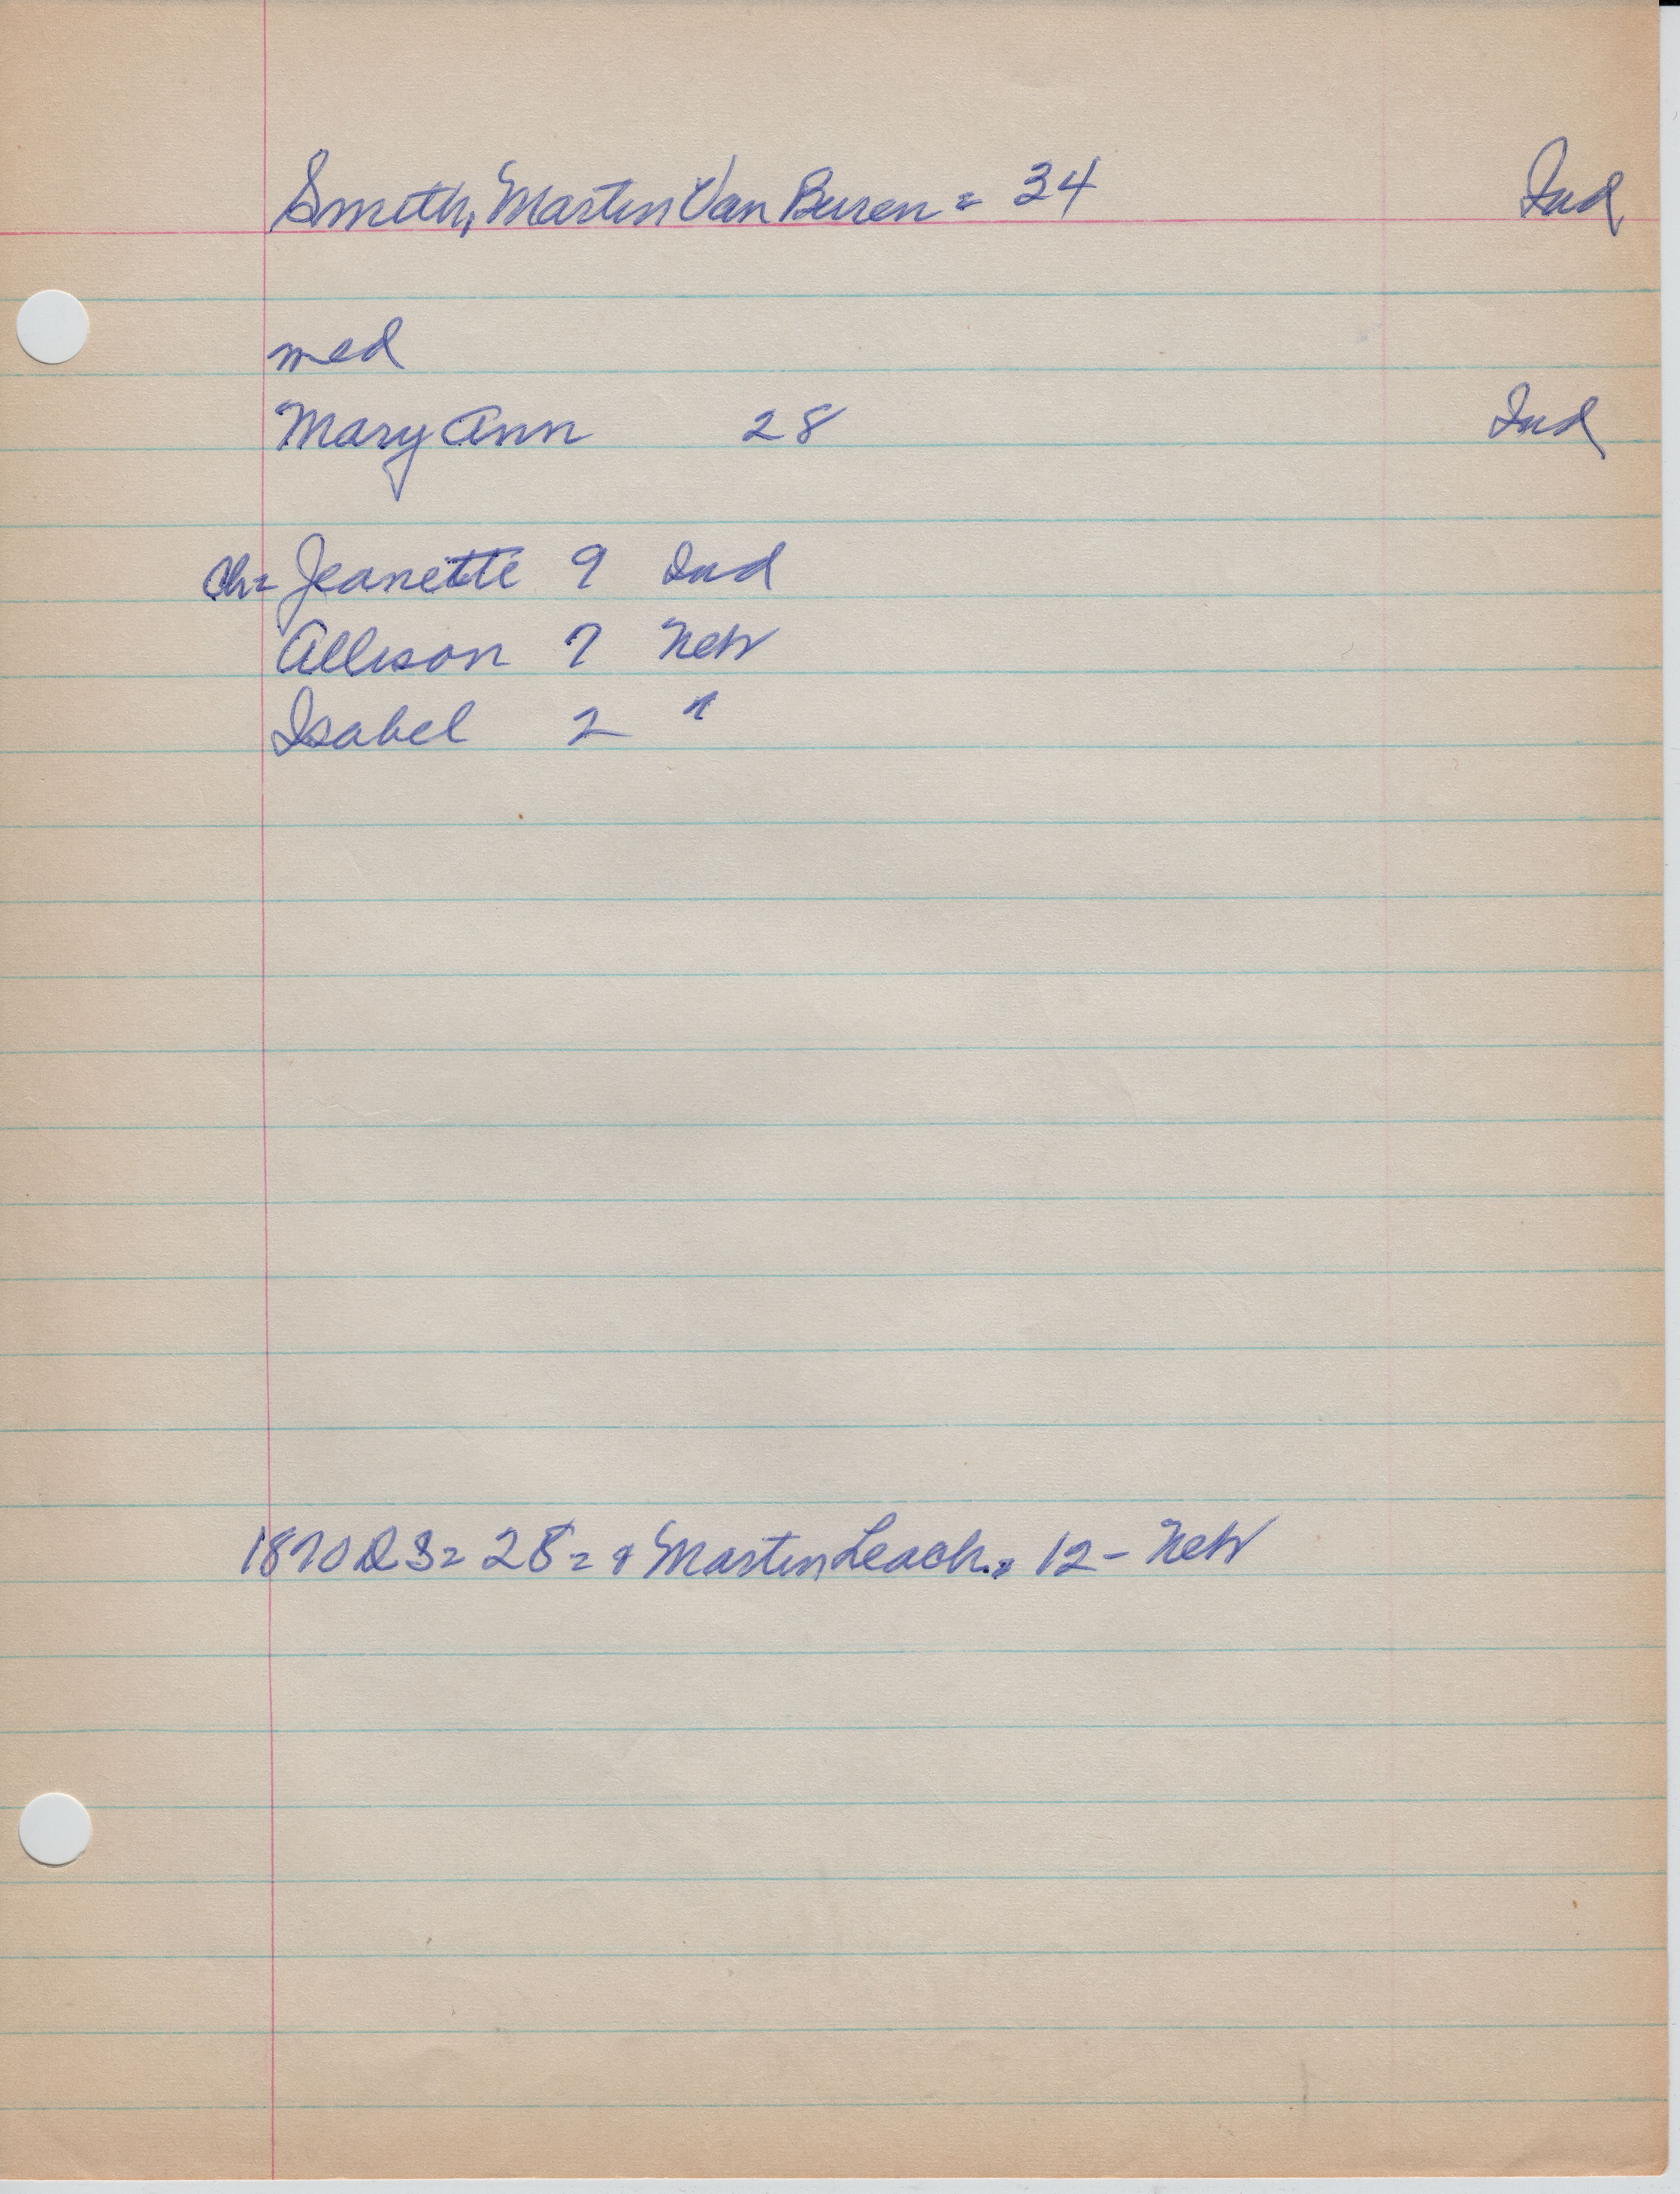 Smith, Martin Van Buren = 34 Ind
med
Mary Ann 28 Ind
Ch= Jeanette 9 Ind
Allison 7 Neb
Isabel 2 "
1870 D S= 28= & Martin Leach.= 12- Neb